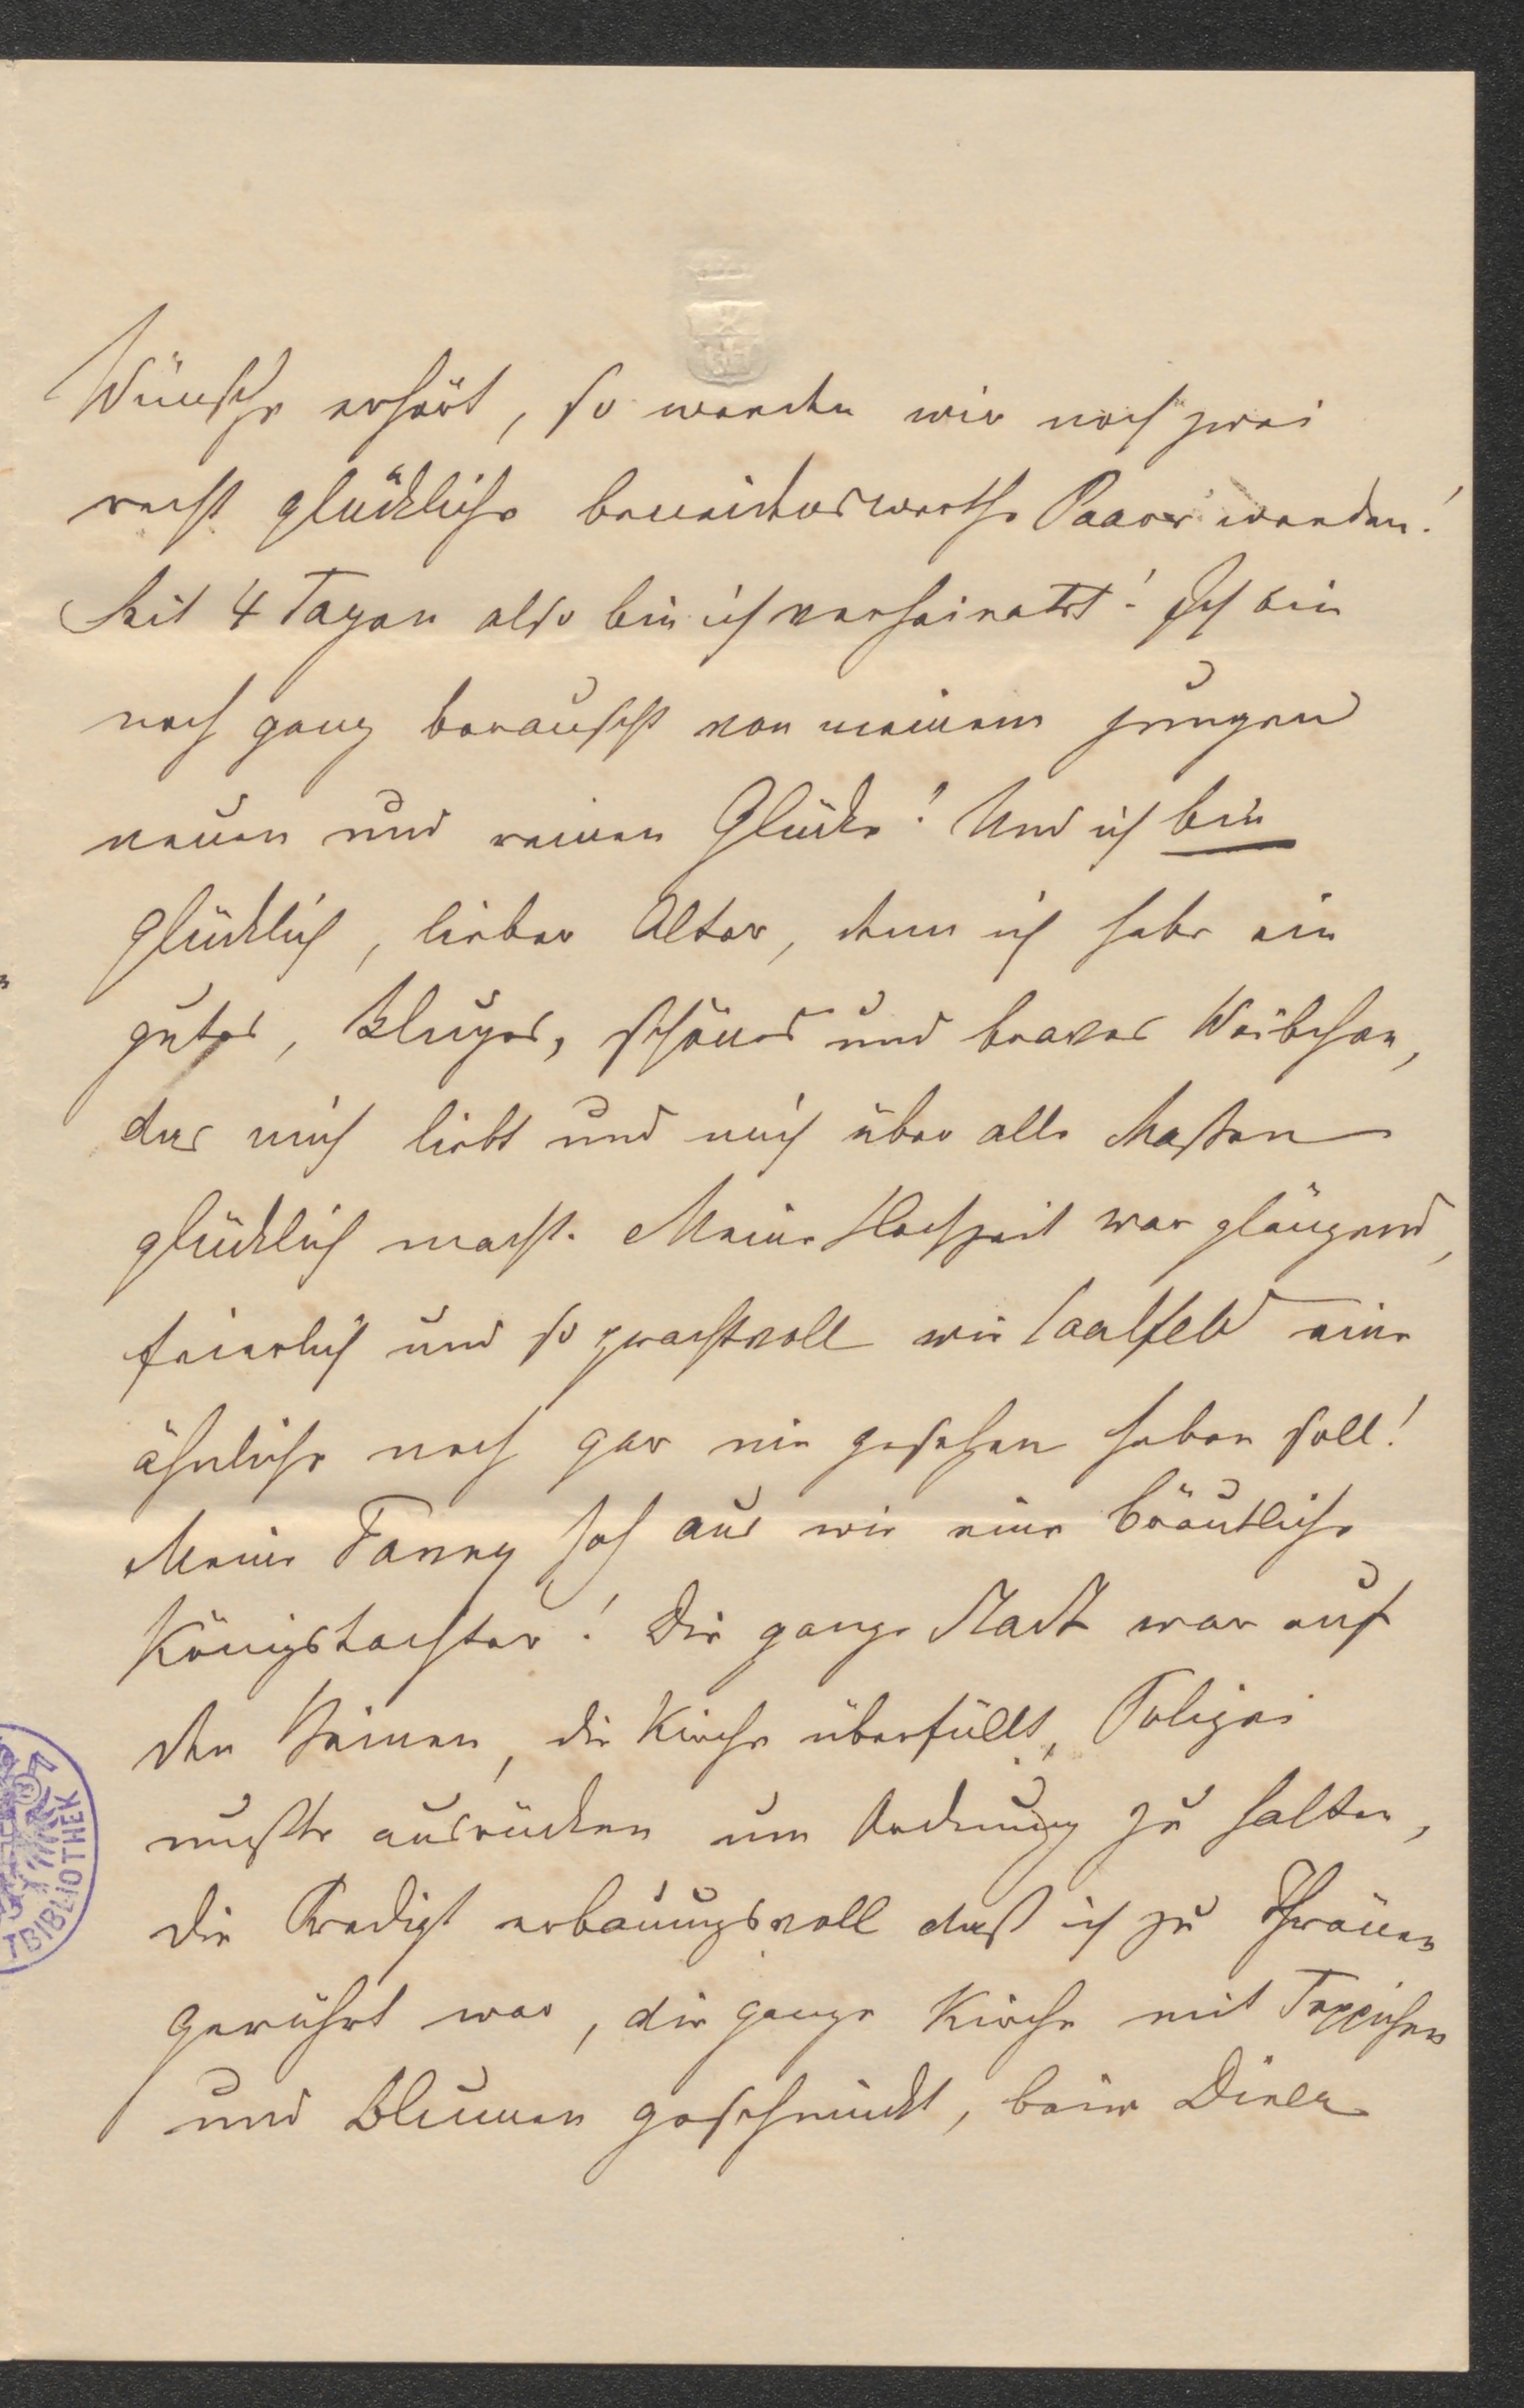 Wünsche erhört, so werden wir noch zwei
recht glückliche beneidenswerthe Paare werden!
Seit 4 Tagen also bin ich verheiratet! Ich bin
noch ganz berauscht von meinem jungen
neuen und reinen Glücke! Und ich bin
glücklich, lieber Alter, denn ich habe ein
gutes, kluges, schönes und braves Weibchen,
das mich liebt und mich über alle Maßen
glücklich macht. Meine Hochzeit war glänzend,
feierlich und so prachtvoll wie Saalfeld eine
ähnliche noch gar nie gesehen haben soll!
Meine Fanny sah aus wie eine bräutliche
Königstochter! Die ganze Stadt war auf
den Beinen, die Kirche überfüllt, Polizei
mußte ausrücken um Ordnung zu halten,
die Predigt erbauungsvoll daß ich zu Thränen
gerührt war, die ganze Kirche mit Teppichen
und Blumen geschmückt, beim Diner
TBIBLIOTHEK